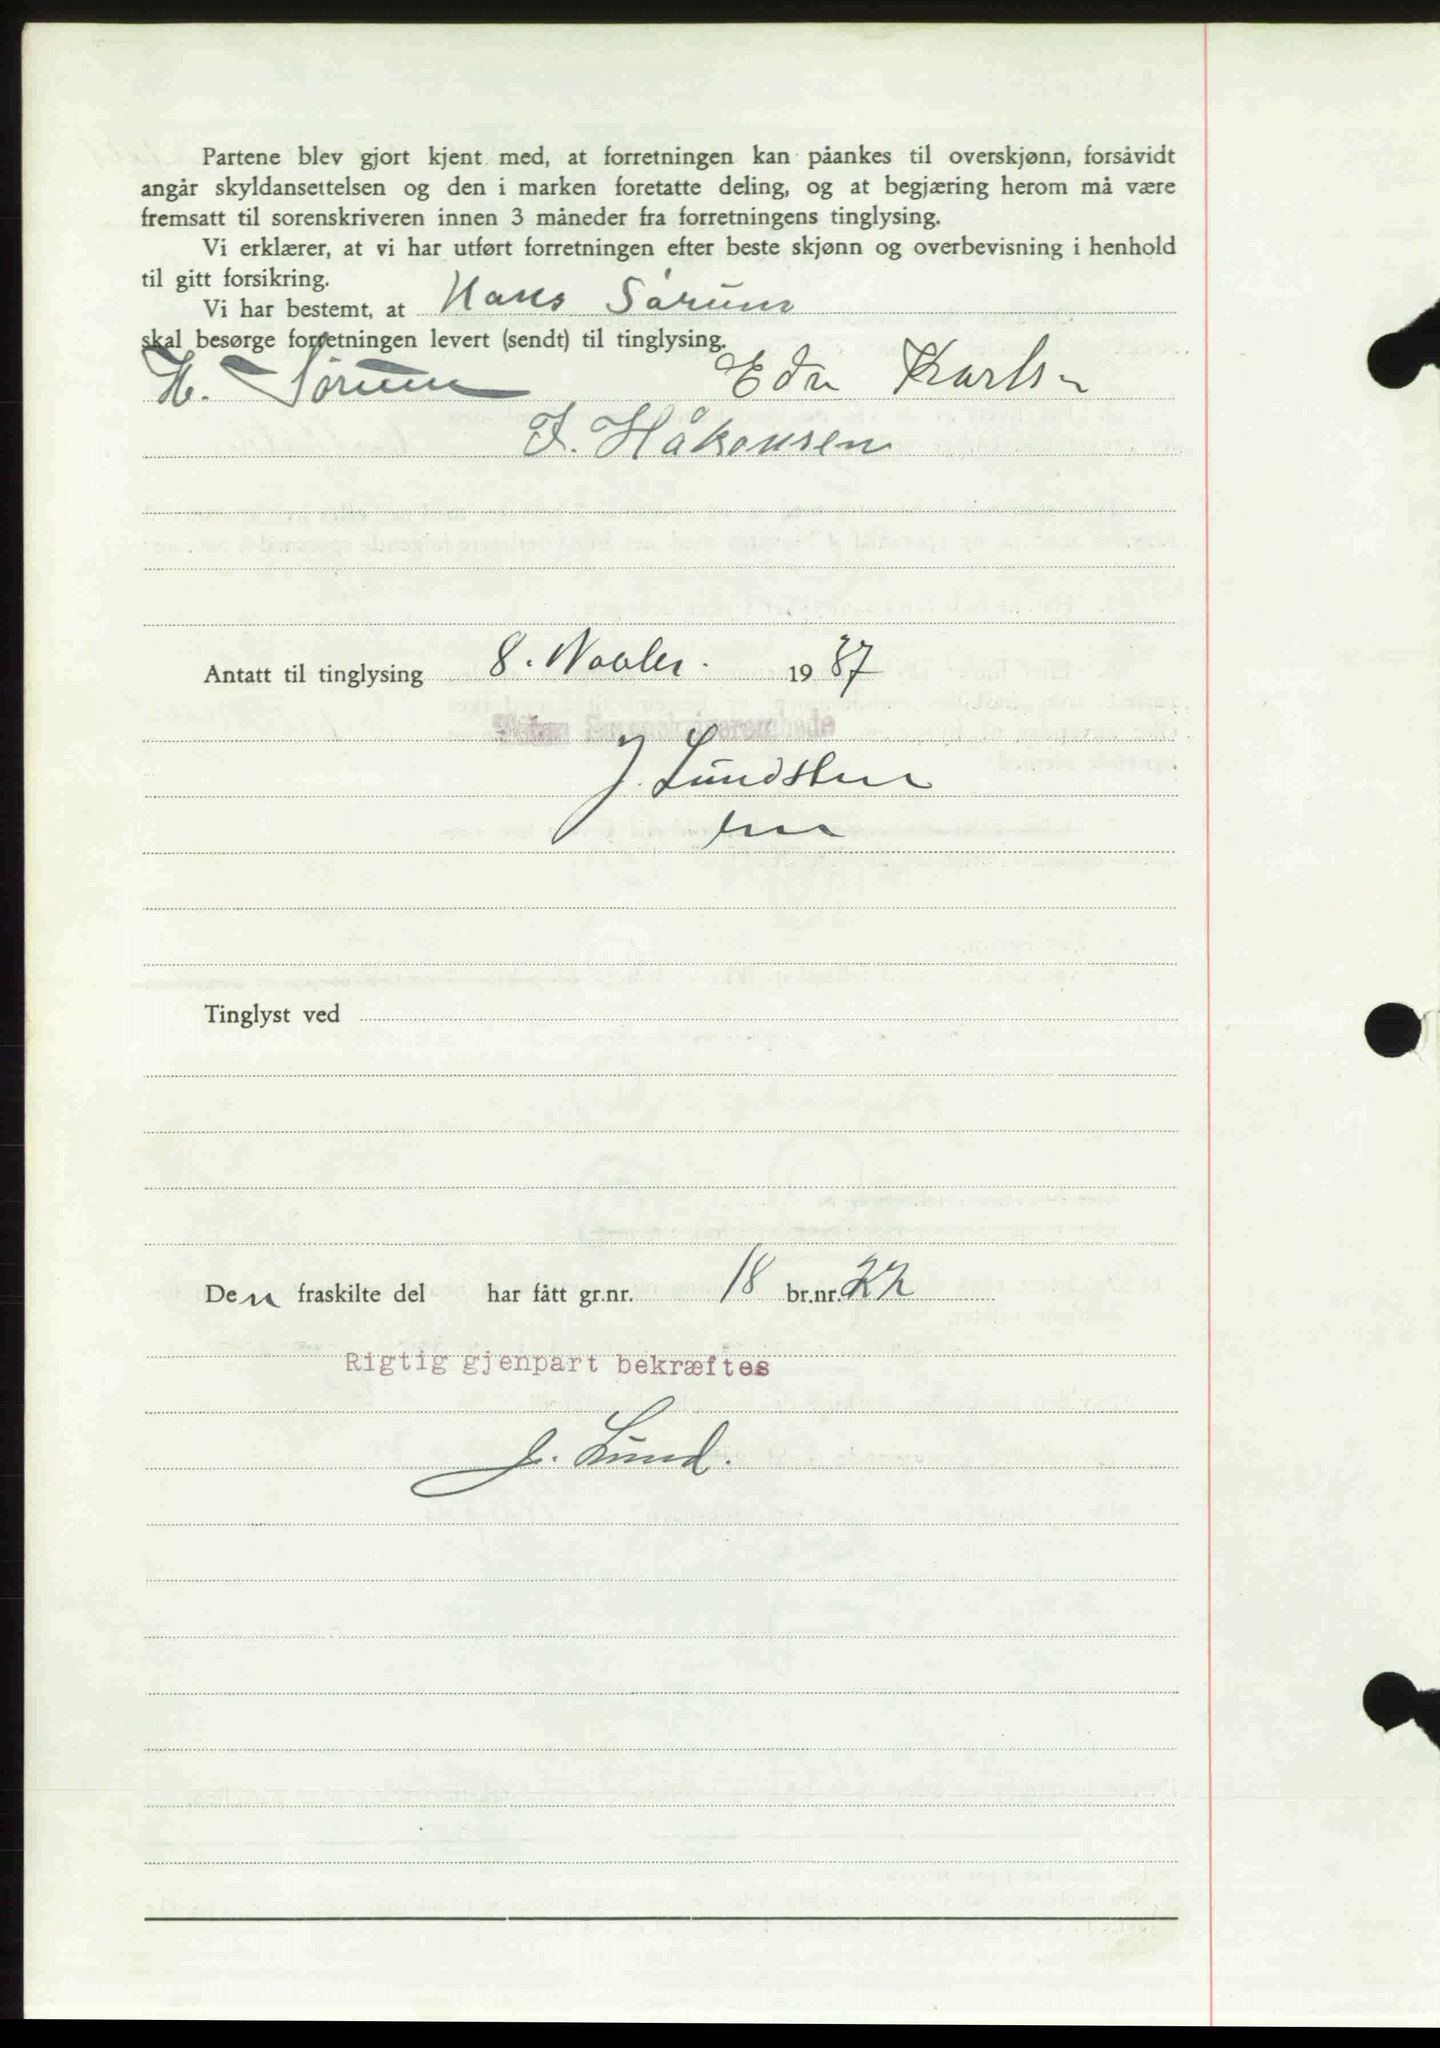 Partene blev gjort kjent med, at forretningen kan påankes til overskjønn, forsåvidt
angår skyldansettelsen og den i marken foretatte deling, og at begjæring herom må være
fremsatt til sorenskriveren innen 3 måneder fra forretningens tinglysing.
Vi erklærer, at vi har utført forretningen efter beste skjønn og overbevisning i henhold
til gitt forsikring.
Vi har bestemt, at Hans Sørum
skal besørge forretningen levert (sendt) til tinglysing.
H. Sørum Edv Karlsen
F. Håkonsen
Antatt til tinglysing 8. Novbr. 1937
Sorenskriverembede
J. Lundsten
Tinglyst ved
Den fraskilte del har fått gr.nr. 18 br.nr. 22
Rigtig gjenpart bekræftes
J. Lund.